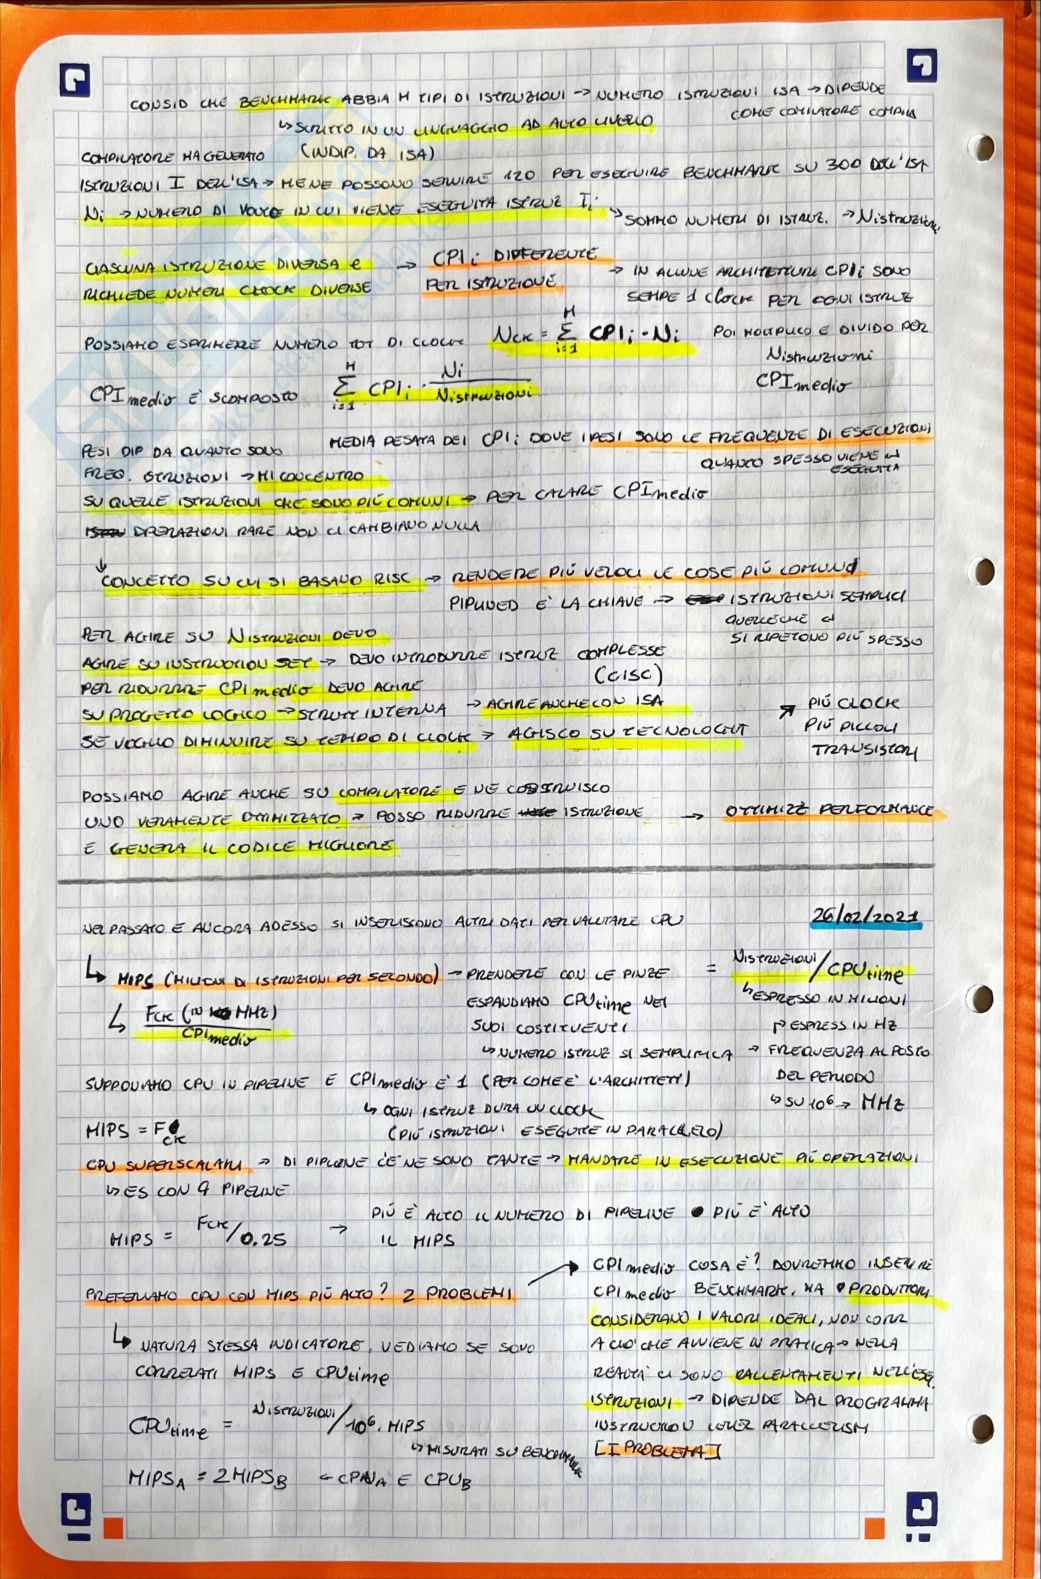 CONSID CHE BENCHMARK ABBIA M TIPI DI ISTRUZIONI → NUMERO ISTRUZIONI ISA → DIPENDE
COME COMPILATORE COMPILA
↳ SCRITTO IN UN LINGUAGGIO AD ALTO LIVELLO
(INDIP. DA ISA)
COMPILATORE HA GENERATO
ISTRUZIONI I DELL'ISA → ME NE POSSONO SERVIRE 120 PER ESEGUIRE BENCHMARK SU 300 DELL'ISA
Ni → NUMERO DI VOLTE IN CUI VIENE ESEGUITA ISTRUZ Ii
↳ SOMMO NUMERI DI ISTRUZ. → Nistruzioni
CIASCUNA ISTRUZIONE DIVERSA E → CPIi DIFFERENTE
RICHIEDE NUMERI CLOCK DIVERSI PER ISTRUZIONE
→ IN ALCUNE ARCHITETTURE CPIi SONO
SEMPE 1 CLOCK PER OGNI ISTRUZ
POSSIAMO ESPRIMERE NUMERO TOT DI CLOCK NCK = M Σ i=1 CPIi · Ni
POI MOLTIPLICO E DIVIDO PER
Nistruzioni
CPImedio
CPImedio È SCOMPOSTO M Σ i=1 CPIi · Ni / Nistruzioni
MEDIA PESATA DEI CPIi DOVE I PESI SONO LE FREQUENZE DI ESECUZIONI
QUANTO SPESSO VIENE ESEGUITA
PESI DIP DA QUANTO SONO
FREQ. ISTRUZIONI → MI CONCENTRO
SU QUELLE ISTRUZIONI CHE SONO PIÙ COMUNI → PER CALARE CPImedio
OPERAZIONI RARE NON CI CAMBIANO NULLA
↓
CONCETTO SU CUI SI BASANO RISC → RENDERE PIÙ VELOCI LE COSE PIÙ COMUNI
PIPLINED È LA CHIAVE → ISTRUZIONI SEMPLICI
QUELLE CHE
SI RIPETONO PIÙ SPESSO
PER AGIRE SU Nistruzioni DEVO
AGIRE SU INSTRUCTION SET → DEVO INTRODURRE ISTRUZ COMPLESSE
(CISC)
PER RIDURRE CPImedio DEVO AGIRE
SU PROGETTO LOGICO → STRUTT INTERNA → AGIRE ANCHE CON ISA
SE VOGLIO DIMINUIRE SU TEMPO DI CLOCK → AGISCO SU TECNOLOGIA
↗ PIÙ CLOCK
PIÙ PICCOLI
TRANSISTORI
POSSIAMO AGIRE ANCHE SU COMPILATORE E NE COSTRUISCO
UNO VERAMENTE OTTIMIZZATO → POSSO RIDURRE ISTRUZIONE → OTTIMIZE PERFORMANCE
E GENERA IL CODICE MIGLIORE
26/02/2021
NEL PASSATO E ANCORA ADESSO SI INSERISCONO ALTRI DATI PER VALUTARE CPU
↳ MIPS (MILIONI DI ISTRUZIONI PER SECONDO) → PRENDERE CON LE PINZE = Nistruzioni / CPUtime
↳ ESPRESSO IN MILIONI
↳ FCK (IN MHZ) / CPImedio
ESPANDIAMO CPUtime NEI
SUOI COSTITUENTI
↳ NUMERO ISTRUZ SI SEMPLIFICA → FREQUENZA AL POSTO
DEL PERIODO
ESPRESS IN HZ
↳ SU 10⁶ → MHZ
SUPPONIAMO CPU IN PIPELINE E CPImedio È 1 (PER COME È L'ARCHITETT)
↳ OGNI ISTRUZ DURA UN CLOCK
(PIÙ ISTRUZIONI ESEGUITE IN PARALLELO)
MIPS = FCK
CPU SUPERSCALARI → DI PIPLINE CE NE SONO TANTE → MANDARE IN ESECUZIONE PIÙ OPERAZIONI
↳ ES CON 4 PIPELINE
MIPS = FCK / 0.25 → PIÙ È ALTO IL NUMERO DI PIPELINE PIÙ È ALTO
IL MIPS
PREFERIAMO CPU CON MIPS PIÙ ALTO? 2 PROBLEMI
↗ CPImedio COSA È? DOVREMMO INSERIRE
CPImedio BENCHMARK, MA PRODUTTORI
CONSIDERANO I VALORI IDEALI, NON CORR
A CIÒ CHE AVVIENE IN PRATICA → NELLA
REALTÀ CI SONO RALLENTAMENTI NELL'ESE.
ISTRUZIONI → DIPENDE DAL PROGRAMMA
INSTRUCTION LEVEL PARALLELISM
[I PROBLEMA]
↳ NATURA STESSA INDICATORE, VEDIAMO SE SONO
CORRELATI MIPS E CPUtime
CPUtime = Nistruzioni / 10⁶ · MIPS
↳ MISURATI SU BENCHMARK
MIPSA = 2 MIPSB ← CPUA E CPUB